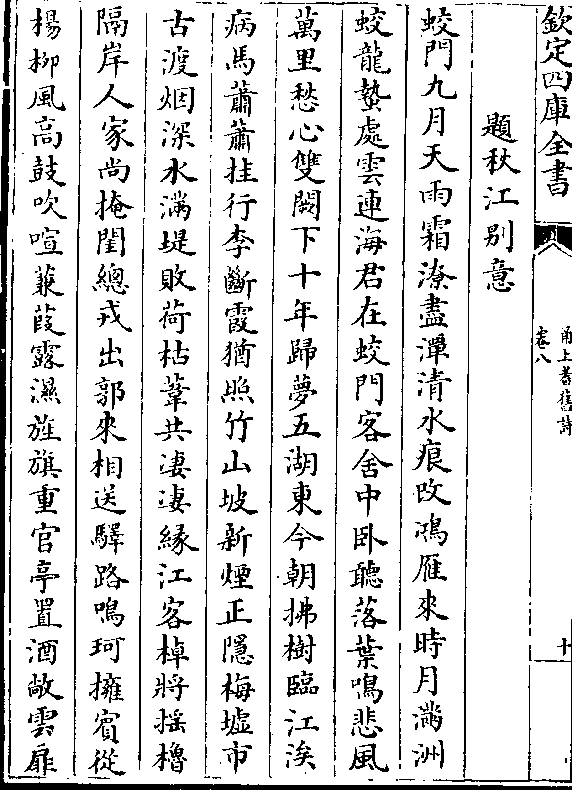 欽定四庫全書
甬上耆舊詩
卷八
十
題秋江别意
蛟門九月天雨霜潦盡潭清水痕改鴻雁來時月滿洲
蛟龍蟄處雲連海君在蛟門客舍中卧聽落葉鳴悲風
萬里愁心雙闕下十年歸夢五湖東今朝拂樹臨江涘
病馬蕭蕭挂行李斷霞猶照竹山坡新煙正隱梅墟市
古渡烟深水滿堤敗荷枯葦共淒淒緣江客棹將揺櫓
隔岸人家尚掩閨總戎出郭來相送驛路鳴珂擁賓從
楊柳風高鼓吹喧蒹葭露濕旌旗重官亭置酒敞雲扉